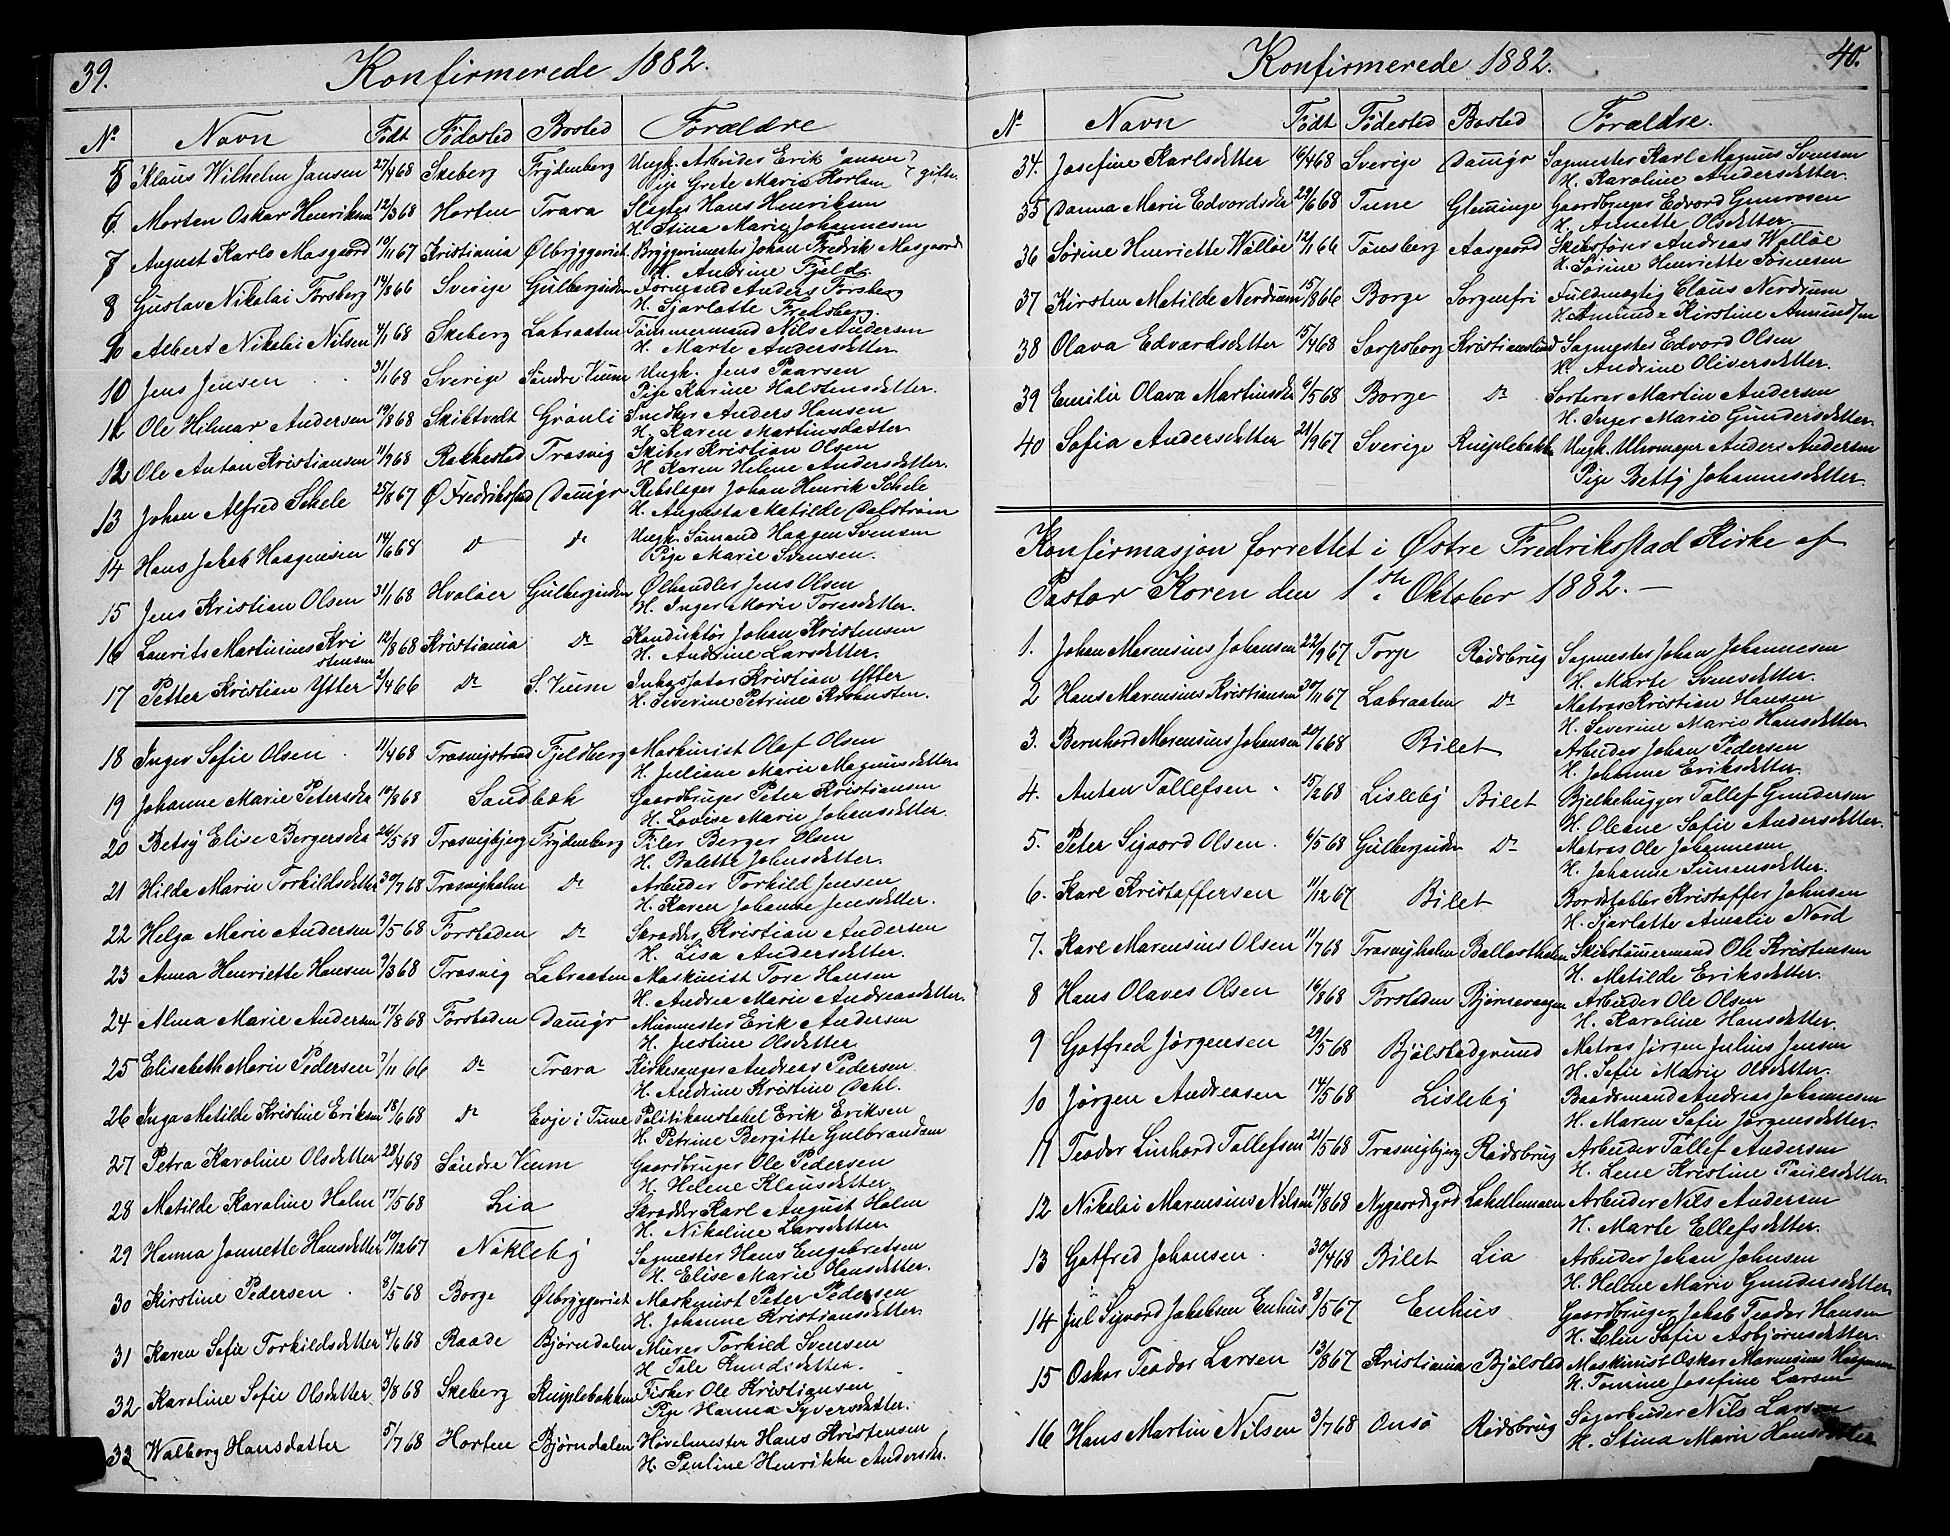 39. Konfirmerede 1882.
No Navn Født Fødested Bosted Forældre
5 Klaus Wilhelm Jansen 27/4 68 Skeberg Frydenberg Ungk. Arbeider Erik Jansen
Pige Grete Marie Karlsen
6 Morten Oskar Henriksen 12/3 68 Horten Trara Slagter Hans Henriksen
H. Stina Marie Johannesen
7 August Karlo Masgaard 10/11 67 Kristiania Ølbryggeriet Bryggerimester Johan Fredrik Masgaard
H. Andrine Fjeld
8 Gustav Nikolai Forsberg 14/8 66 Sverige Gulbergsiden Formand Anders Forsberg
H. Sjarlotte Fredsberg.
9 Albert Nikolai Nilsen 4/1 68 Skeberg Labraaten Tømmermand Nils Andersen
H. Marte Andersdetter
10 Jens Jensen 31/1 68 Sverige Søndre Vium Ungk. Jens Paarsen
Pige Karine Halstensdetter.
11 Ole Hilmar Andersen 19/8 68 Skibtvedt Grønli Snedker Anders Hansen
H. Karen Martinsdatter
12 Ole Anton Kristiansen 11/9 68 Rakkestad Trosvig Skiber Kristian Olsen
H. Karen Helene Andersdetter.
13 Johan Alfred Schele 25/8 67 Ø Fredriksstad Damgr Rebslager Johan Henrik Schele
H. Augusta Matilde Dalstrøm
14 Hans Jakob Haagensen 14/6 68 do do Ungk. Sømand Haagen Svensen
Pige Marie Svensen.
15 Jens Kristian Olsen 31/1 68 Hvaløer Gulbergsiden Ølhandler Jens Olsen
H. Inger Marie Toresdetter.
16 Laurits Martinius Kri 12/8 68 Kristiania do Konduktør Johan Kristensen
stensen H. Andrine Larsdetter.
17 Petter Kristian Ytter 2/4 66 do S. Vium Inkassator Kristian Ytter
H. Severine Petrine
18 Inger Sofie Olsen 11/4 68 Trosvigstrand Fjeldberg Maskinist Olaf Olsen
H. Juliane Marie Magnusdetter
19 Johanne Marie Petersdtr 10/8 68 Sandbæk Gaardbruger Peter Kristiansen
H. Lovise Marie Johansdetter
20 Betsy Elise Bergersdtr 26/5 68 Trosvigbjerg Frydenberg Filer Berger Olsen
H. Bolette Johnsdetter.
21 Hilda Marie Torkildsdetter 30/7 68 Trosvigholm do Arbeider Torkild Jensen
H. Karen Johanne Jensdetter.
22 Helga Marie Andersen 9/5 68 Forstaden do Skrædder Kristian Andersen
H. Lisa Andersdetter.
23 Anna Henriette Hansen 9/3 68 Trosvig Labraaten Maskinist Tore Hansen
H. Andrea Marie Andreasdetter.
24 Alma Marie Andersen 17/8 68 Forstaden Damgr Murmester Erik Andersen
H. Justine Olsdetter
25 Elisabeth Marie Pedersen 7/11 66 do Trara Kirkesanger Andreas Pedersen
H. Andrine Kristine Dahl.
26 Inga Matilde Kristine Eriksen 18/6 68 do Evje i Tune Politikonstabel Erik Eriksen
H. Petrine Bergitte Gulbrandsen
27 Petra Karoline Olsdetter 28/4 68 Søndre Vium Gaardbruger Ole Pedersen
H. Helene Klausdetter
28 Matilde Karoline Holm 17/5 68 Lia Skrædder Karl August Holm
H. Nikoline Larsdetter
29 Hanna Jannette Hansdetter 10/12 67 Nøkleby Sagmester Hans Engebretsen
H. Elise Marie Hansdetter.
30 Kirstine Pedersen 8/5 68 Borge Ølbryggeriet Maskinist Peter Pedersen
H. Johanne Kristiansdetter
31 Karen Sofie Torkildsdetter 4/6 68 Raade Bjørndalen Murer Torkild Svensen
H. Tale Knudsdetter.
32 Karoline Sofie Olsdetter 3/8 68 Skeberg Kniplebakken Fisker Ole Kristiansen
Pige Hanna Syversdetter.
33 Walborg Hansdatter 5/7 68 Horten Bjørndalen Høvelmester Hans Kristensen
H. Pauline Henrikke Andersdtr.
Konfirmerede 1882. 40.
No Navn Født Fødested Bosted Forældre.
34. Josefine Karlsdetter 16/4 68 Sverige Damgr Sagmester Karl Magnus Svensen
H. Karoline Andersdetter.
35 Danna Marie Edvardsdtr 29/6 68 Tune Glemminge Gaardbruger Edvard Gunrosen
H. Annette Olsdetter.
36 Sørine Henriette Walløe 12/1 66 Tønsberg Aasgaard Skibsfører Andreas Walløe
H. Sørine Henriette Sørensen
37 Kirsten Matilde Nerdrum 15/8 66 Borge Sorgenfri Fuldmægtig Claus Nerdrum
H. Amunda Kirstine Amundsen
38 Olava Edvardsdetter 15/4 68 Sarpsborg Kristianslund Sagmester Edvard Olsen
H. Andrine Oliversdetter.
39 Emilie Olava Martinsdtr 6/5 68 Borge do Sorterer Martin Andersen
H. Inger Marie Gundersdetter
40 Sofia Andersdetter 21/9 67 Sverige Kniplebakken Ungk. Uhrmager Anders Andersen
Pige Betty Johannesdetter
Konfirmasjon forrettet i Østre Fredriksstad Kirke af
Pastor Koren den 1ste Oktober 1882. —
1. Johan Marensius Johansen 22/9 67 Torp Rødsbrug Sagmester Johan Johannesen
H. Marte Svensdetter.
2 Hans Marensius Kristiansen 30/11 67 Labraaten do Matros Kristian Hansen
H. Severine Marie Hansdetter
3. Bernhard Marensius Johansen 20/6 68 Bilet Arbeider Johan Pedersen
H. Johanne Eriksdetter.
4. Anton Tollefsen 15/2 68 Lisleby Bilet Bjelkehugger Tollef Gundersen
H. Oleane Sofie Andersdetter.
5. Peter Sigvard Olsen 6/5 68 Gulbergsiden do Matros Ole Johannesen
H. Johanne Simensdetter.
6. Karl Kristoffersen 11/12 67 Bilet Bordstabler Kristoffer Johnsen
H. Sjarlotte Amalie Nord
7. Karl Marensius Olsen 11/7 68 Trosvigholm Ballastholm Skibstømmermand Ole Kristensen
H. Matilde Eriksdetter.
8 Hans Olaves Olsen 16/8 68 Forstaden Bjørnevaagen Arbeider Ole Olsen
H. Karoline Hansdetter.
9 Gotfred Jørgensen 29/5 68 Bjølstadgrund Matros Jørgen Julius Jensen
H. Sofie Marie Olsdetter.
10 Jørgen Andreasen 14/5 68 Lisleby Baadsmand Andreas Johannesen
H. Maren Sofie Jørgensdetter
11 Teodor Linhard Tollefsen 21/5 68 Trosvigbjerg Rødsbrug Arbeider Tollef Andersen
H. Lene Kristine Paulsdetter
12 Nikolai Marensius Nilsen 14/8 68 Nygaardsgrd Arbeider Nils Andersen
H. Marte Ellefsdetter.
13 Gotfred Johansen 30/4 68 Bilet Lia Arbeider Johan Johnsen
H. Helene Marie Gundersdetter
14 Jul Sigvard Jakobsen Enhus 8/5 67 Enhus Gaardbruger Jakob Teodor Hansen
H. Elen Sofie Asbjørnsdetter
15 Oskar Teodor Larsen 13/8 67 Kristiania Bjølstad Maskinist Oskar Marensius
H. Tomine Josefine Larsen
16 Hans Martin Nilsen 3/7 68 Onsø Rødsbrug Sagarbeider Nils Larsen
H. Stina Marie Hansdetter